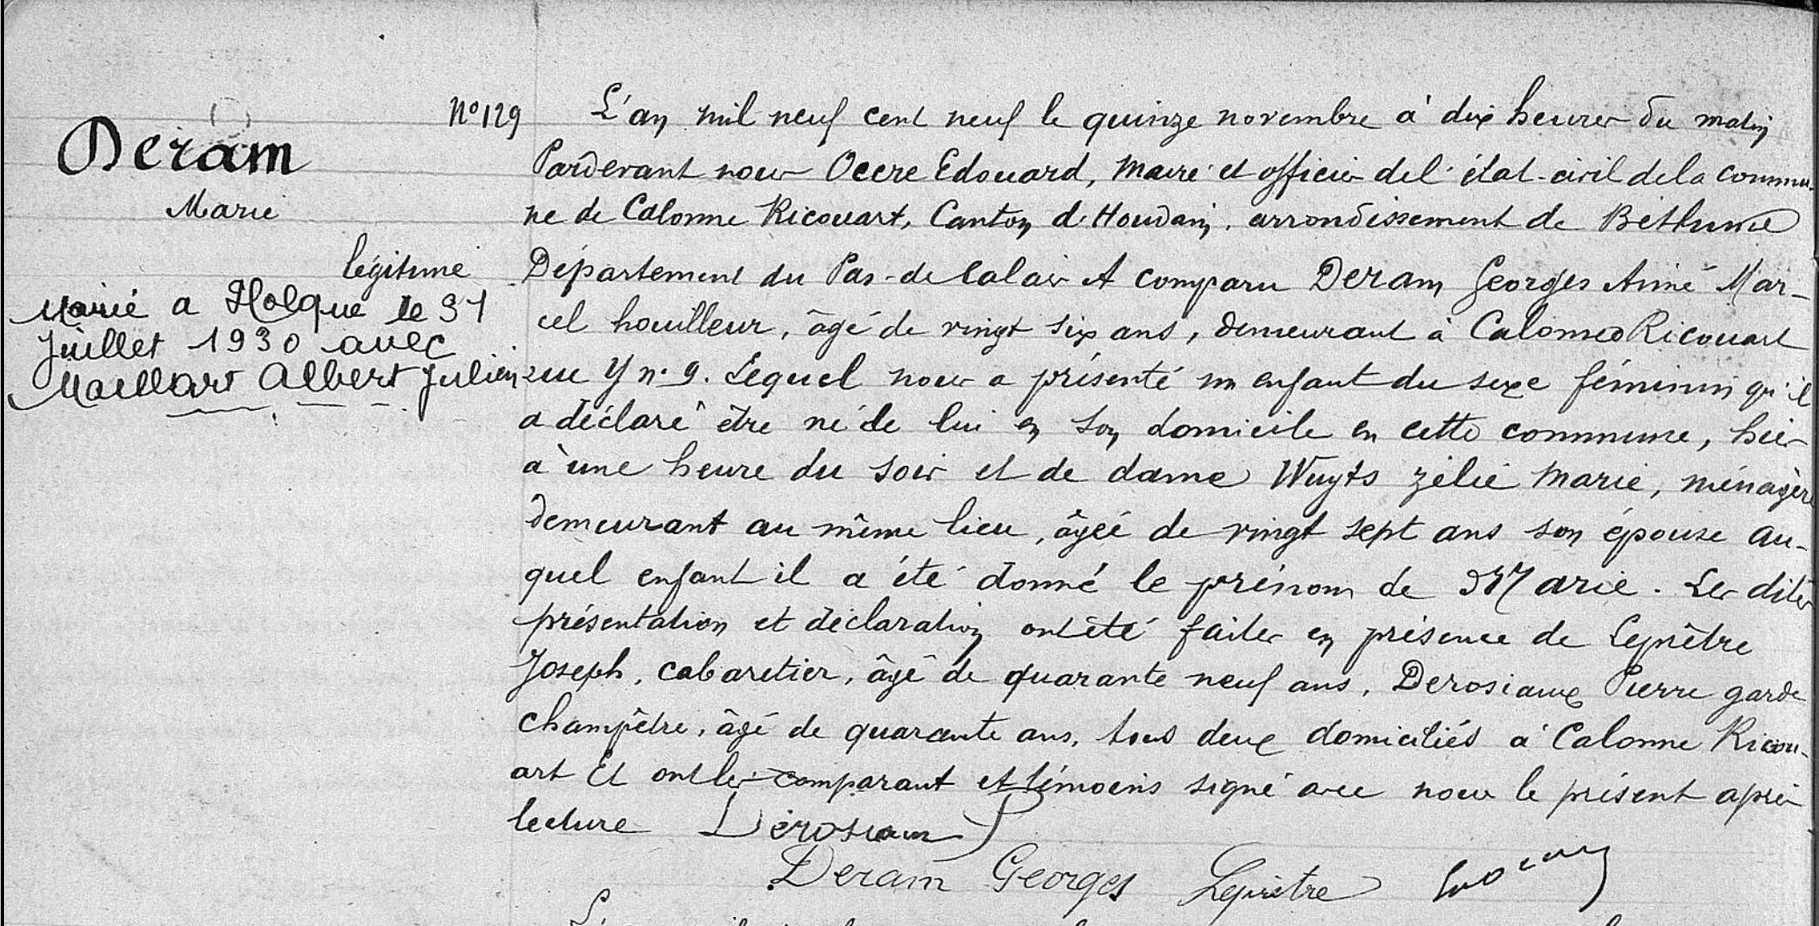 Deram
Marie
légitime
Marié a Holque le 31
Juillet 1930 avec
Maillart Albert Julien
N° 129
L'an mil neuf cent neuf le quinze novembre à dix heures du matin
Pardevant nous Occre Edouard, Maire et officier del'état-civil dela commu-
ne de Calonne Ricouart, Canton d'Houdain, arrondissement de Béthune
Département du Pas-de Calais A comparu Deram Georges Aimé Mar-
cel houilleur, âgé de vingt six ans, demeurant à Calonne Ricouart
rue Y n° 9. Lequel nous a présenté un enfant du sexe féminin qu'il
a déclaré être né de lui en son domicile en cette commune, hier
à une heure du soir et de dame Wuyts Zélie Marie, ménagère
demeurant au même lieu, âgée de vingt sept ans son épouse au-
quel enfant il a été donné le prénom de Marie. Les dites
présentation et déclaration ont été faites en présence de Leprêtre
Joseph, cabaretier, âgé de quarante neuf ans, Derosiaux Pierre garde
champêtre, âgé de quarante ans, tous deux domiciliés à Calonne Ricou-
art Et ont les comparant et témoins signé avec nous le présent après
lecture Derosiaux P
Deram Georges Leprêtre